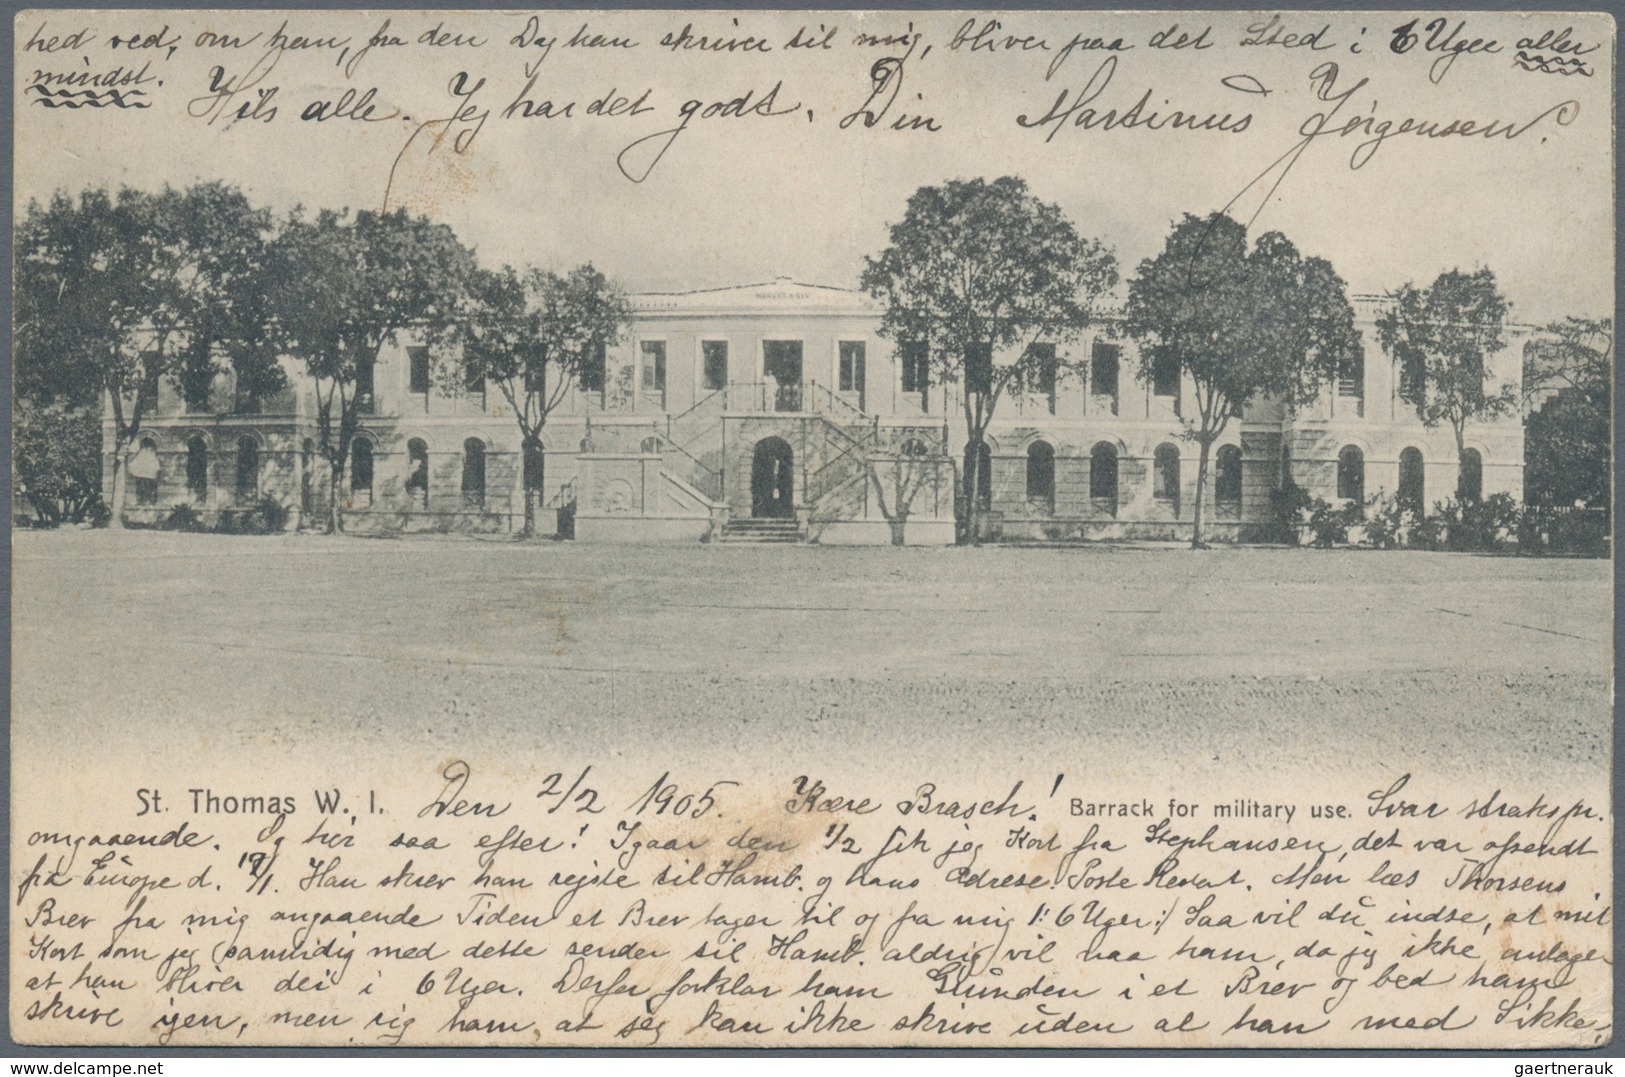 hed ved, om han, fra den Dag han skriver til mig, bliver paa det Sted i 6 Uger aller
mindst. Hils alle. Jeg har det godt. Din Martinus Jørgensen.
MDCCCLXXIV
St. Thomas W. I. Den 2/2 1905. Kære Brasch! Barrack for military use. Svar straks pr.
omgaaende. Og hør saa efter! Igaar den 1/2 fik jeg Kort fra Stephansen, det var afsendt
fra Europe d. /1. Han skrev han rejste til Hamb. og hans Adresse: Poste Restat. Men læs Thorsens
Brev fra mig angaaende Tiden et Brev tager til og fra mig 1: 6 Uger:/ Saa vil du indse, at mit
Kort som jeg (samtidig med dette sender til Hamb. aldrig) vil naa ham, da jeg ikke antager
at han bliver der i 6 Uger. Derfor forklar ham Grunden i et Brev og bed ham
skrive igen, men sig ham, at jeg kan ikke skrive uden at han med Sikker
delcampe.net
gaertnerauk